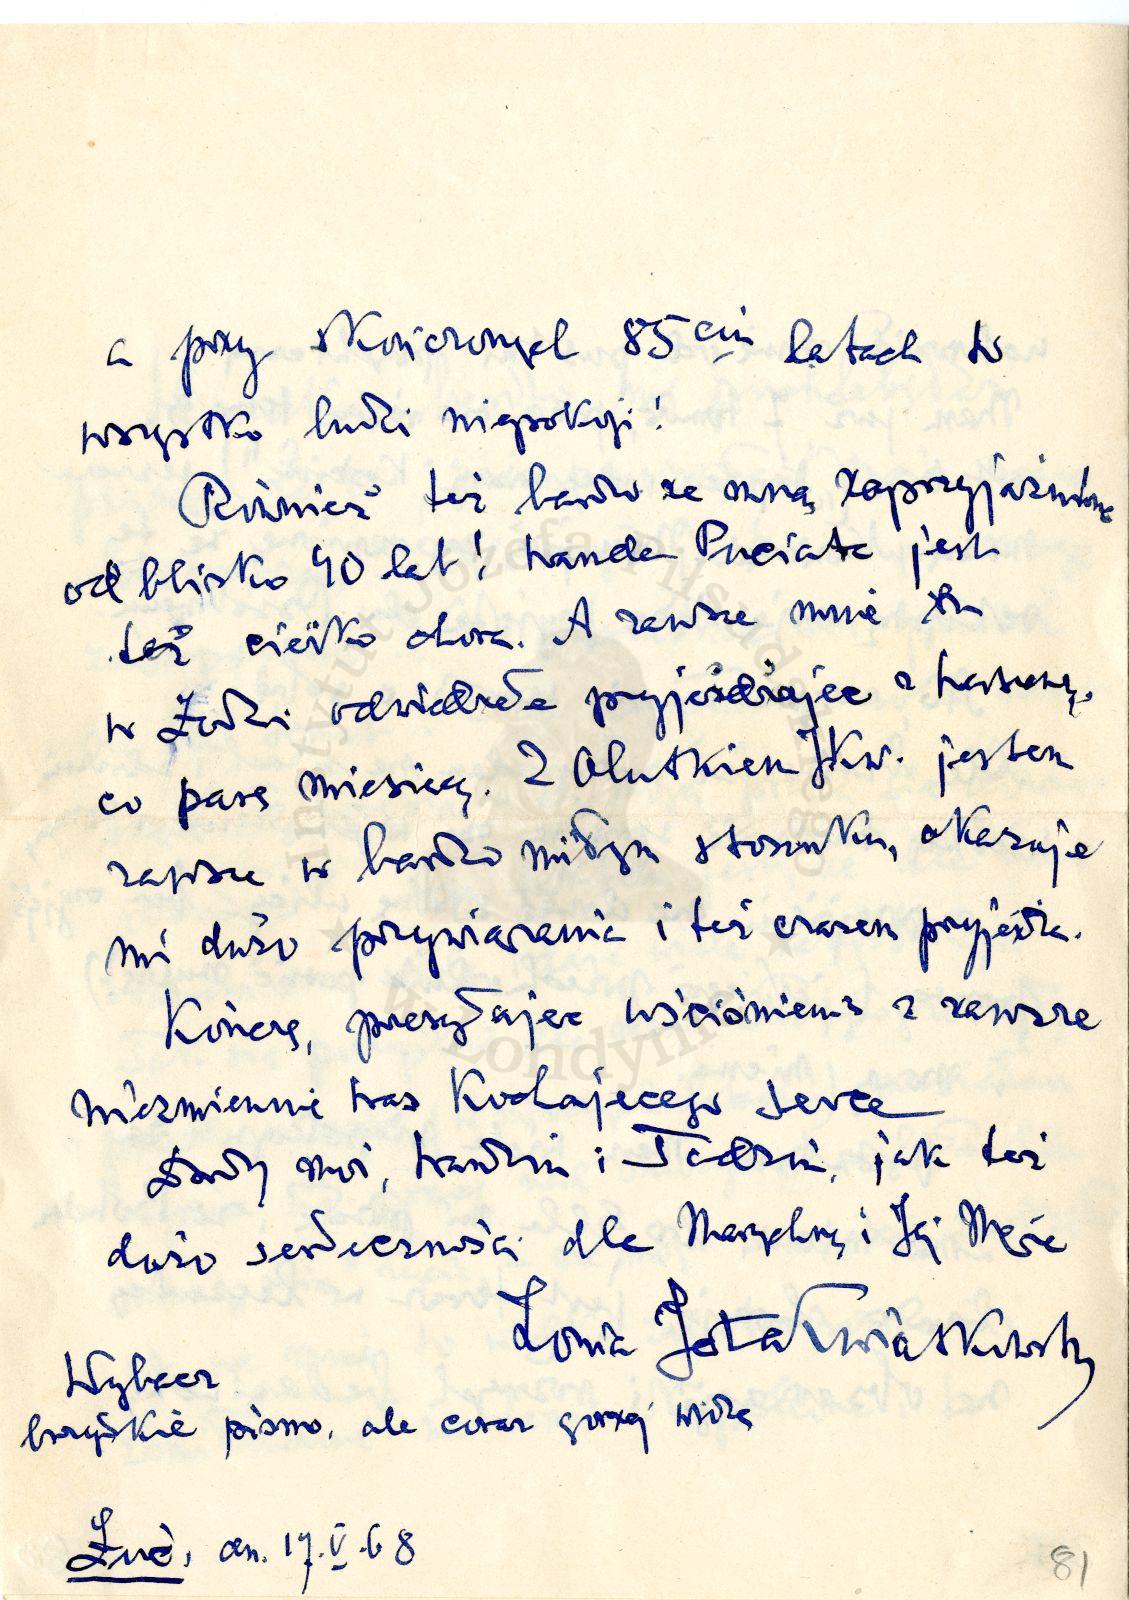 a przy skończonych 85ciu latach to
wszystko ludzi niepokoji!
Również też bardzo ze mną zaprzyjaźniona
od blisko 40 lat! Wanda Puciata jest
też ciężko chora. A zawsze mnie tu
w Łodzi odwiedzała przyjeżdżając z Warszawy
co parę miesięcy. Z Olutkiem JKw. jestem
zawsze w bardzo miłym stosunku, okazuje
mi dużo przywiązania i też czasem przyjeżdża.
Kończę, przesyłając uściśnienia z zawsze
niezmiennie Was Kochającego serca
Drodzy moi, Wandziu i Tadziu, jak też
dużo serdeczności dla Marychny i Jej Męża
Zonia JotaKwiatkowska
Wybacz
brzydkie pismo, ale coraz gorzej widzę
Łódź, dn. 17.V.68
81
Instytut Józefa Piłsudskiego
w Londynie